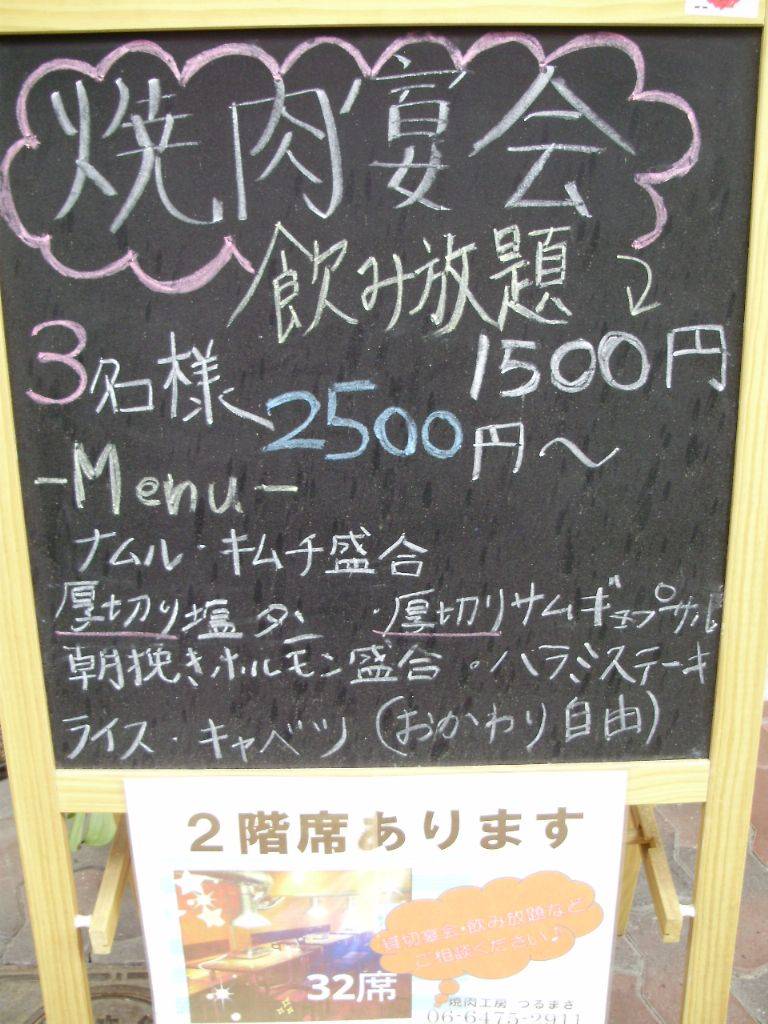 焼肉宴会
飲み放題
1500円
3名様
2500円〜
-Menu-
ナムル・キムチ盛合
厚切り塩タン ・厚切りサムギョプサル
朝挽きホルモン盛合・ハラミステーキ
ライス・キャベツ(おかわり自由)
2階席あります
貸切宴会・飲み放題など
ご相談ください♪
32席
焼肉工房 つるまさ
06-6475-2911